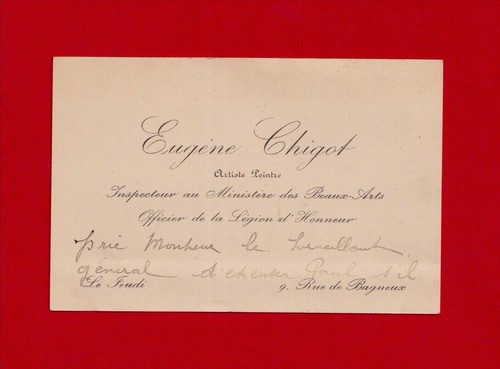 Eugène Chigot
Artiste Peintre
Inspecteur au Ministère des Beaux-Arts
Officier de la Légion d'Honneur
prie Monsieur le Surveillant
général Paul s'il
Le Jeudi 9, Rue de Bagneux